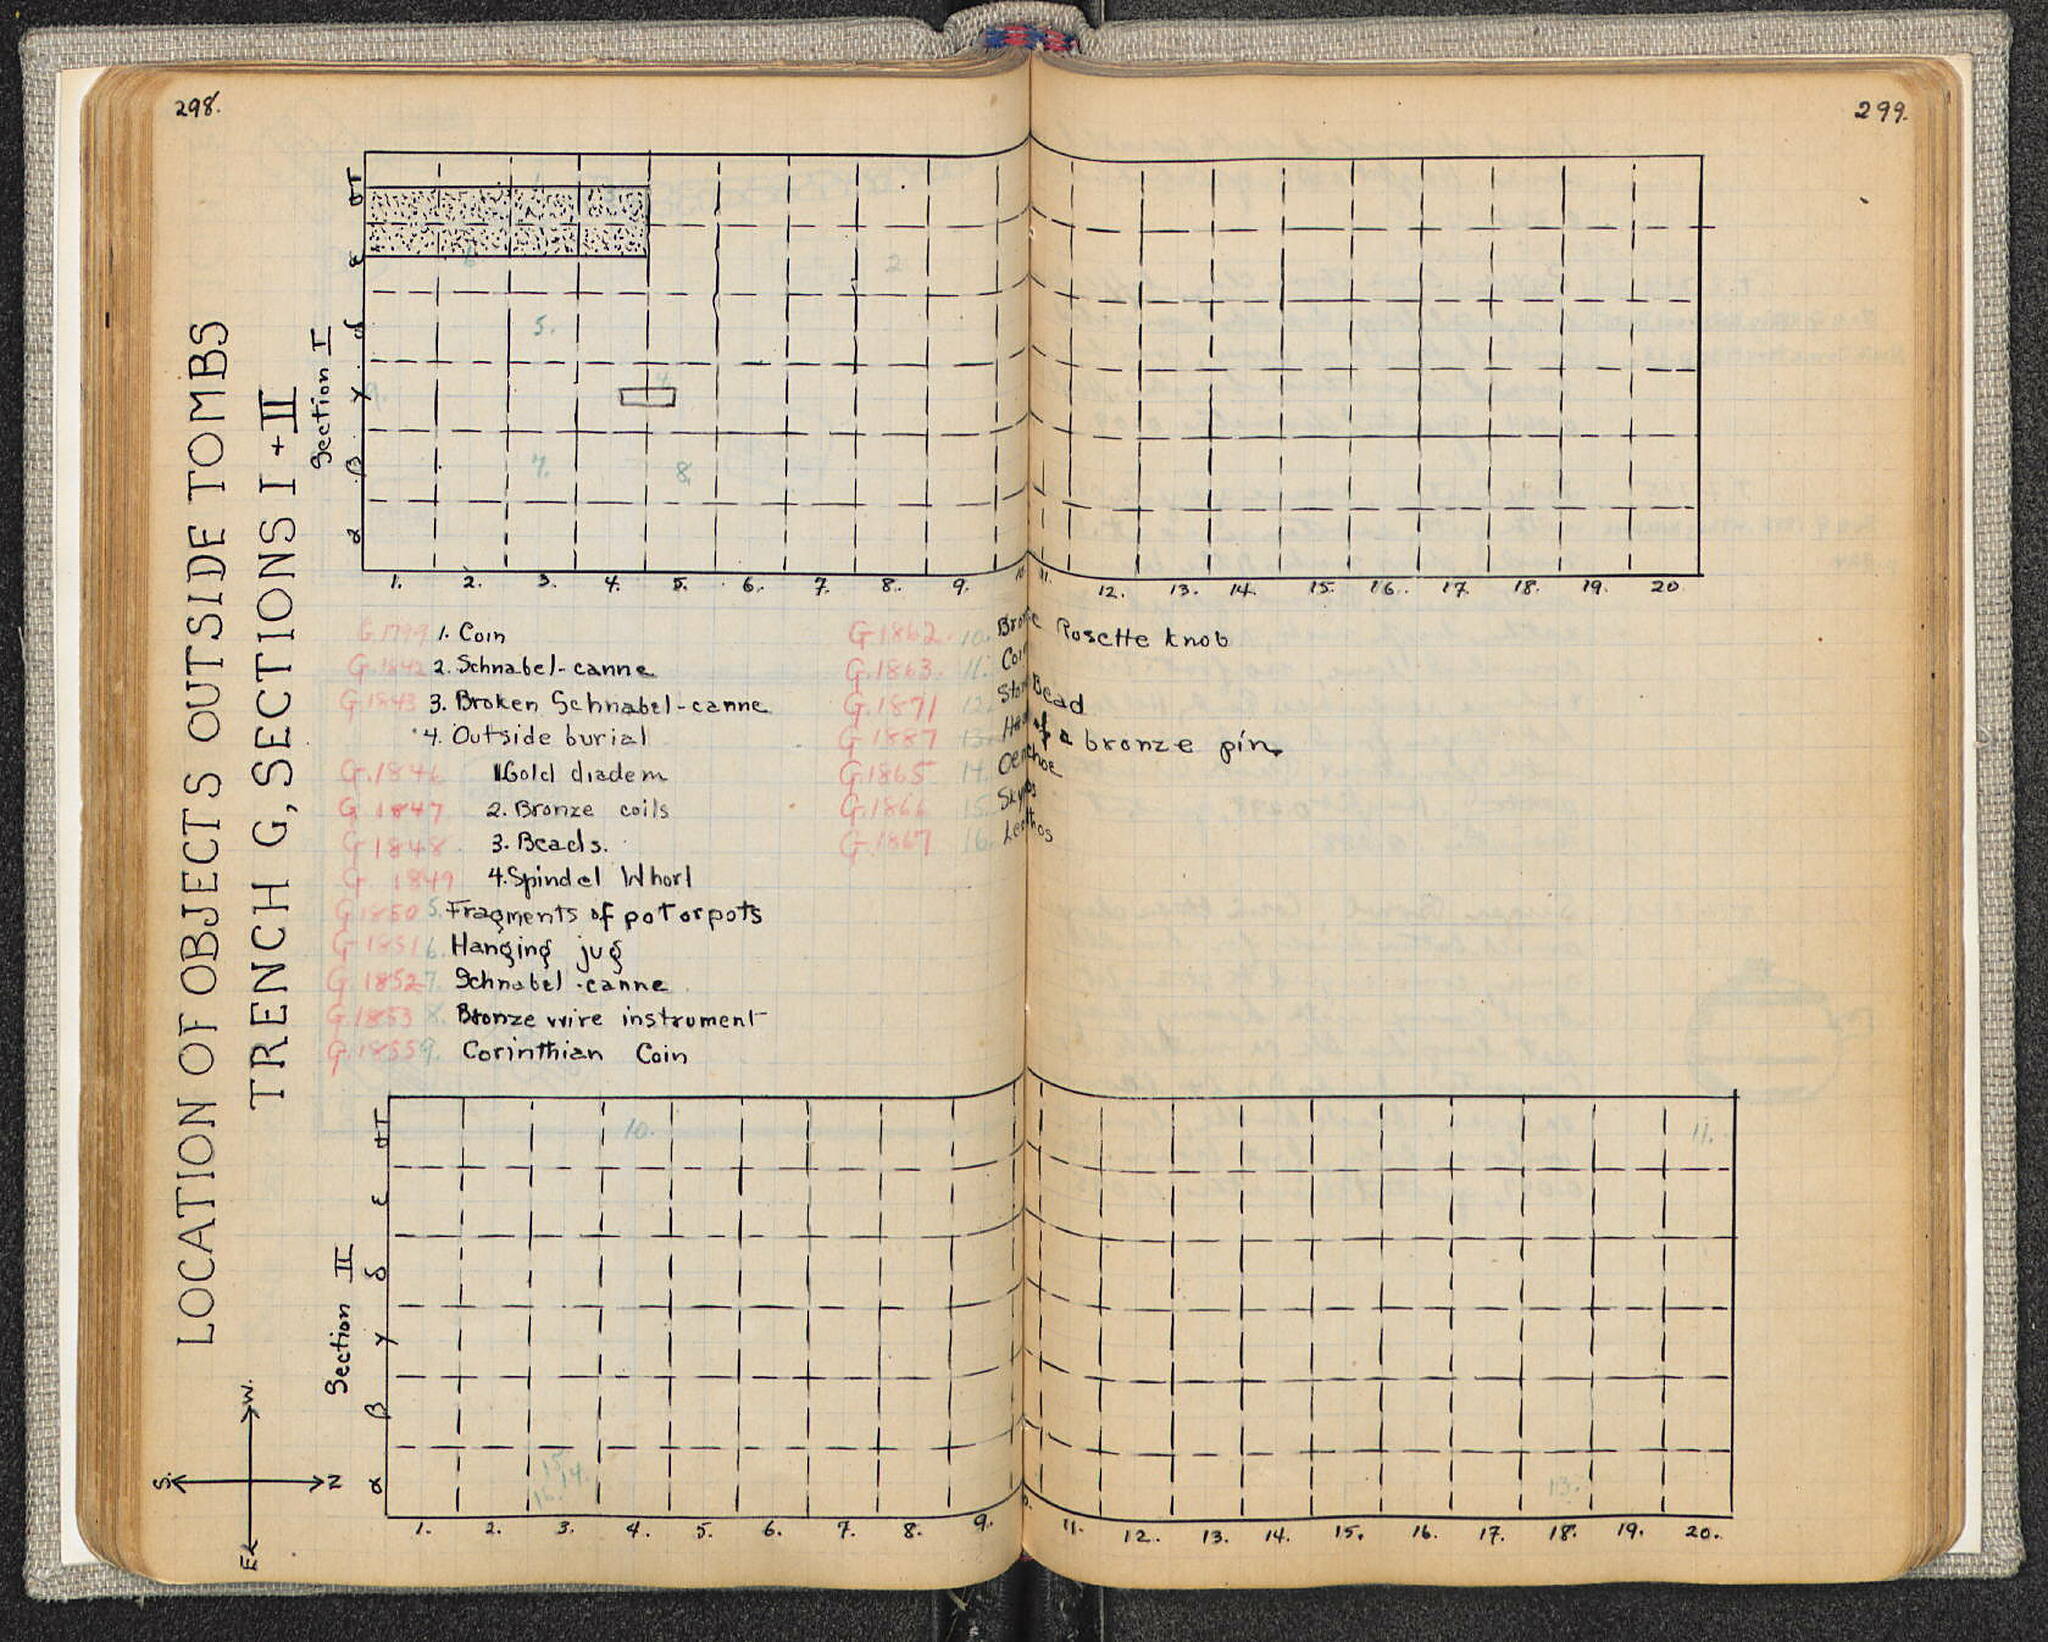 298.
299.
LOCATION OF OBJECTS OUTSIDE TOMBS
TRENCH G, SECTIONS I + II
Section I
στ
ε
δ
γ
β
α
6
2
5.
9.
4.
7.
8.
1. 2. 3. 4. 5. 6. 7. 8. 9. 10. 11. 12. 13. 14. 15. 16. 17. 18. 19. 20
G.1799 1. Coin
G.1842 2. Schnabel-canne
G.1843 3. Broken Schnabel-canne
4. Outside burial
G.1846 1. Gold diadem
G 1847 2. Bronze coils
G 1848 3. Beads.
G 1849 4. Spindel Whorl
G 1850 5. Fragments of pot or pots
G 1851 6. Hanging jug
G. 1852 7. Schnabel-canne
G.1853 8. Bronze wire instrument
G.1855 9. Corinthian Coin
G.1862. 10. Bronze Rosette Knob
G.1863. 11. Coin
G.1871 12. Stone Bead
G.1887 13. Head of a bronze pin
G.1865 14. Oenchoe
G.1866 15. Skyphos
G.1867 16. Lekythos
Section II
στ
ε
δ
γ
β
α
10.
11.
15
14.
13.
1. 2. 3. 4. 5. 6. 7. 8. 9. 11. 12. 13. 14. 15. 16. 17. 18. 19. 20.
W.
S.
N
E